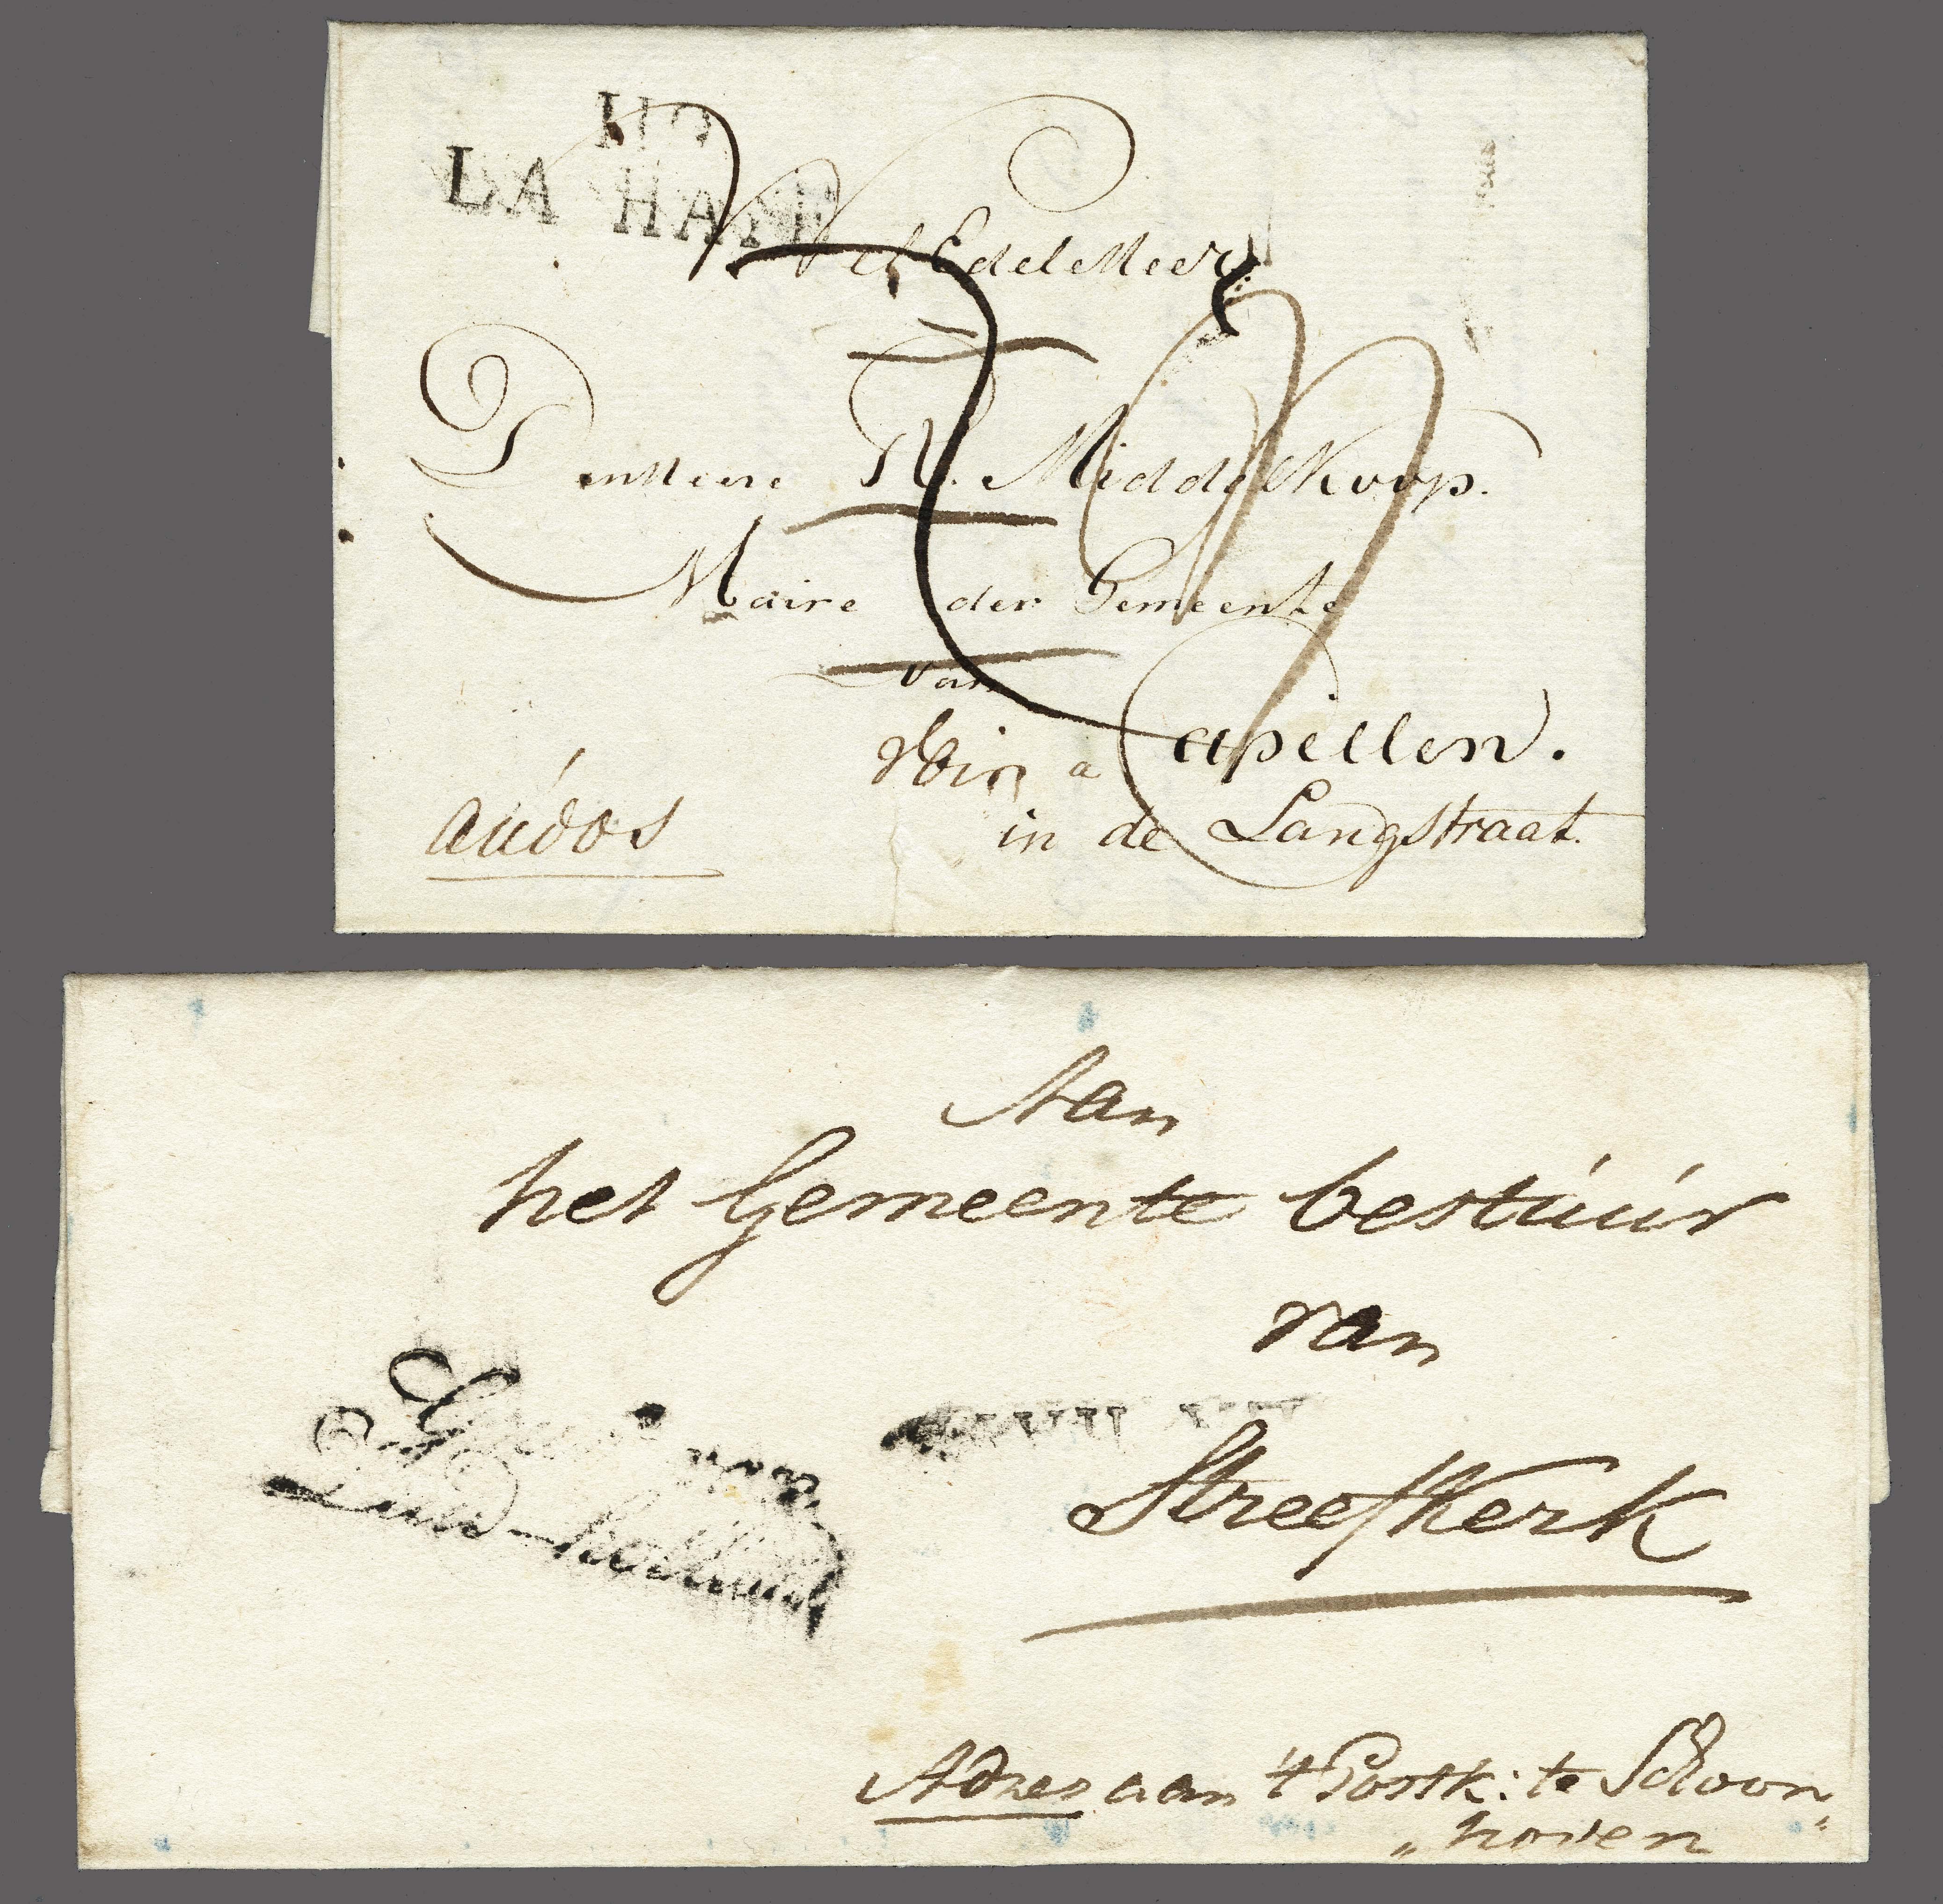 LA HAYE
WelEdele Heer
Den Heere N. Middelkoop.
Maire der Gemeente
van
Capellen.
in de Langstraat.
Aan
het Gemeente bestuur
van
van
Zuid-holland
Streefkerk
Adres aan 't Postk: te Schoon
„ hoven „